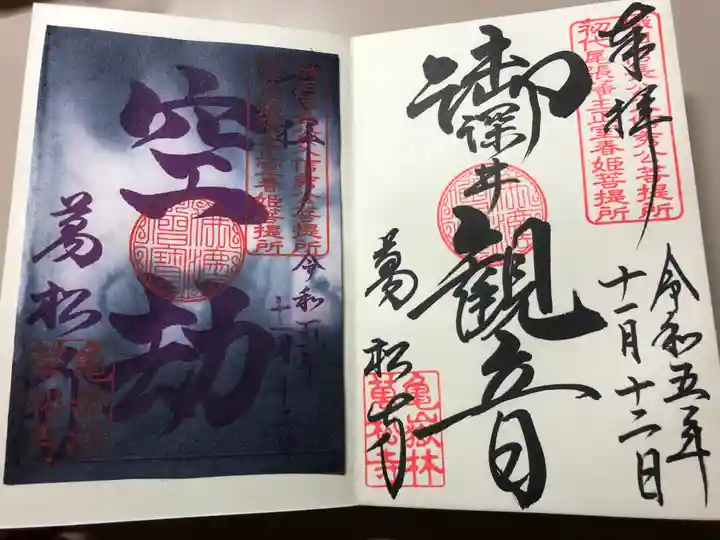 奉拝
初代尾張藩主正室春姫菩提所
御深井観音
令和五年
十一月十二日
萬松寺
亀嶽林
萬松寺
空劫
初代尾張藩主正室春姫菩提所
令和五年
萬松寺
亀嶽林
萬松寺